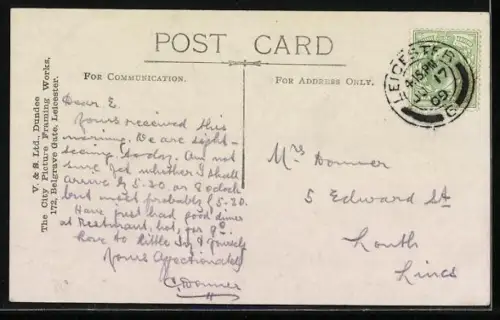 POST CARD
FOR COMMUNICATION.
FOR ADDRESS ONLY.
V. & S. Ltd., Dundee
The City Picture Framing Works,
172, Belgrave Gate, Leicester.
Dear E.
Yours received this
morning. We are sight-
seeing today. Am not
sure yet whether I shall
arrive by 5.20. or 8 oclock
but most probably 5.20.
Have just had good dinner
at Restaurant, hot, for
Love to little Ivy & yourself
Yours Affectionately
C. Donner
Mrs Donner
5 Edward St
Louth
Lincs
LEICESTER
4.15 PM
17
09